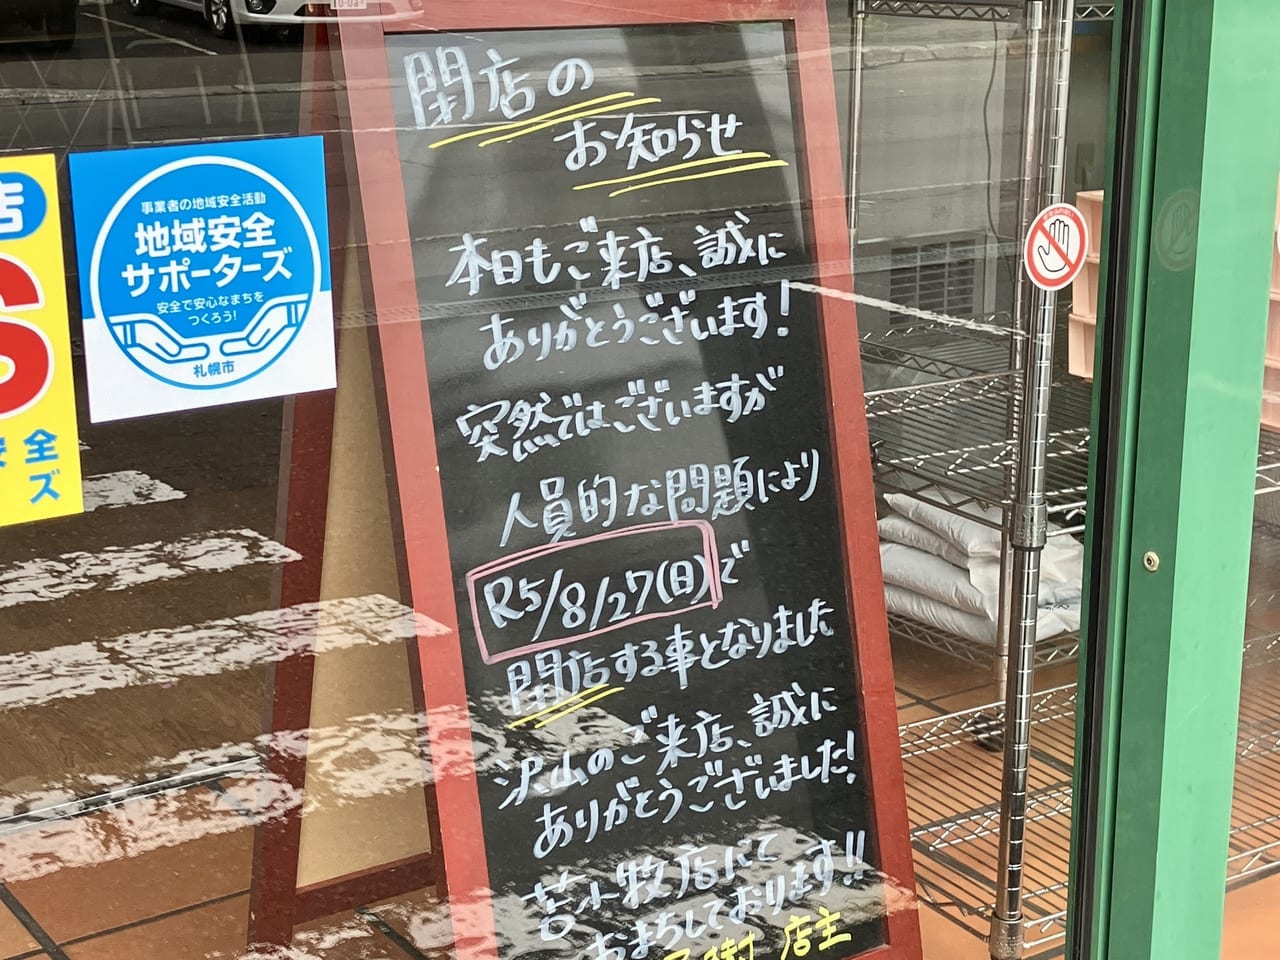 閉店の
お知らせ
本日もご来店、誠に
ありがとうございます!
突然ではございますが
人員的な問題により
R5/8/27(日)で
閉店する事となりました
沢山のご来店、誠に
ありがとうございました!
苫小牧店にて
おまちしております!!
店主
事業者の地域安全活動
地域安全
サポーターズ
安全で安心なまちを
つくろう!
札幌市
店
S
安全
ズ